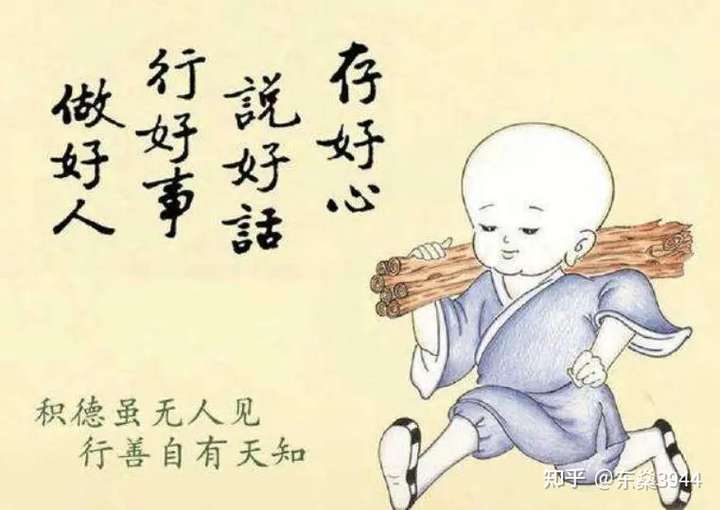 存好心
說好話
行好事
做好人
积德虽无人见
行善自有天知
知乎 @东燊3944